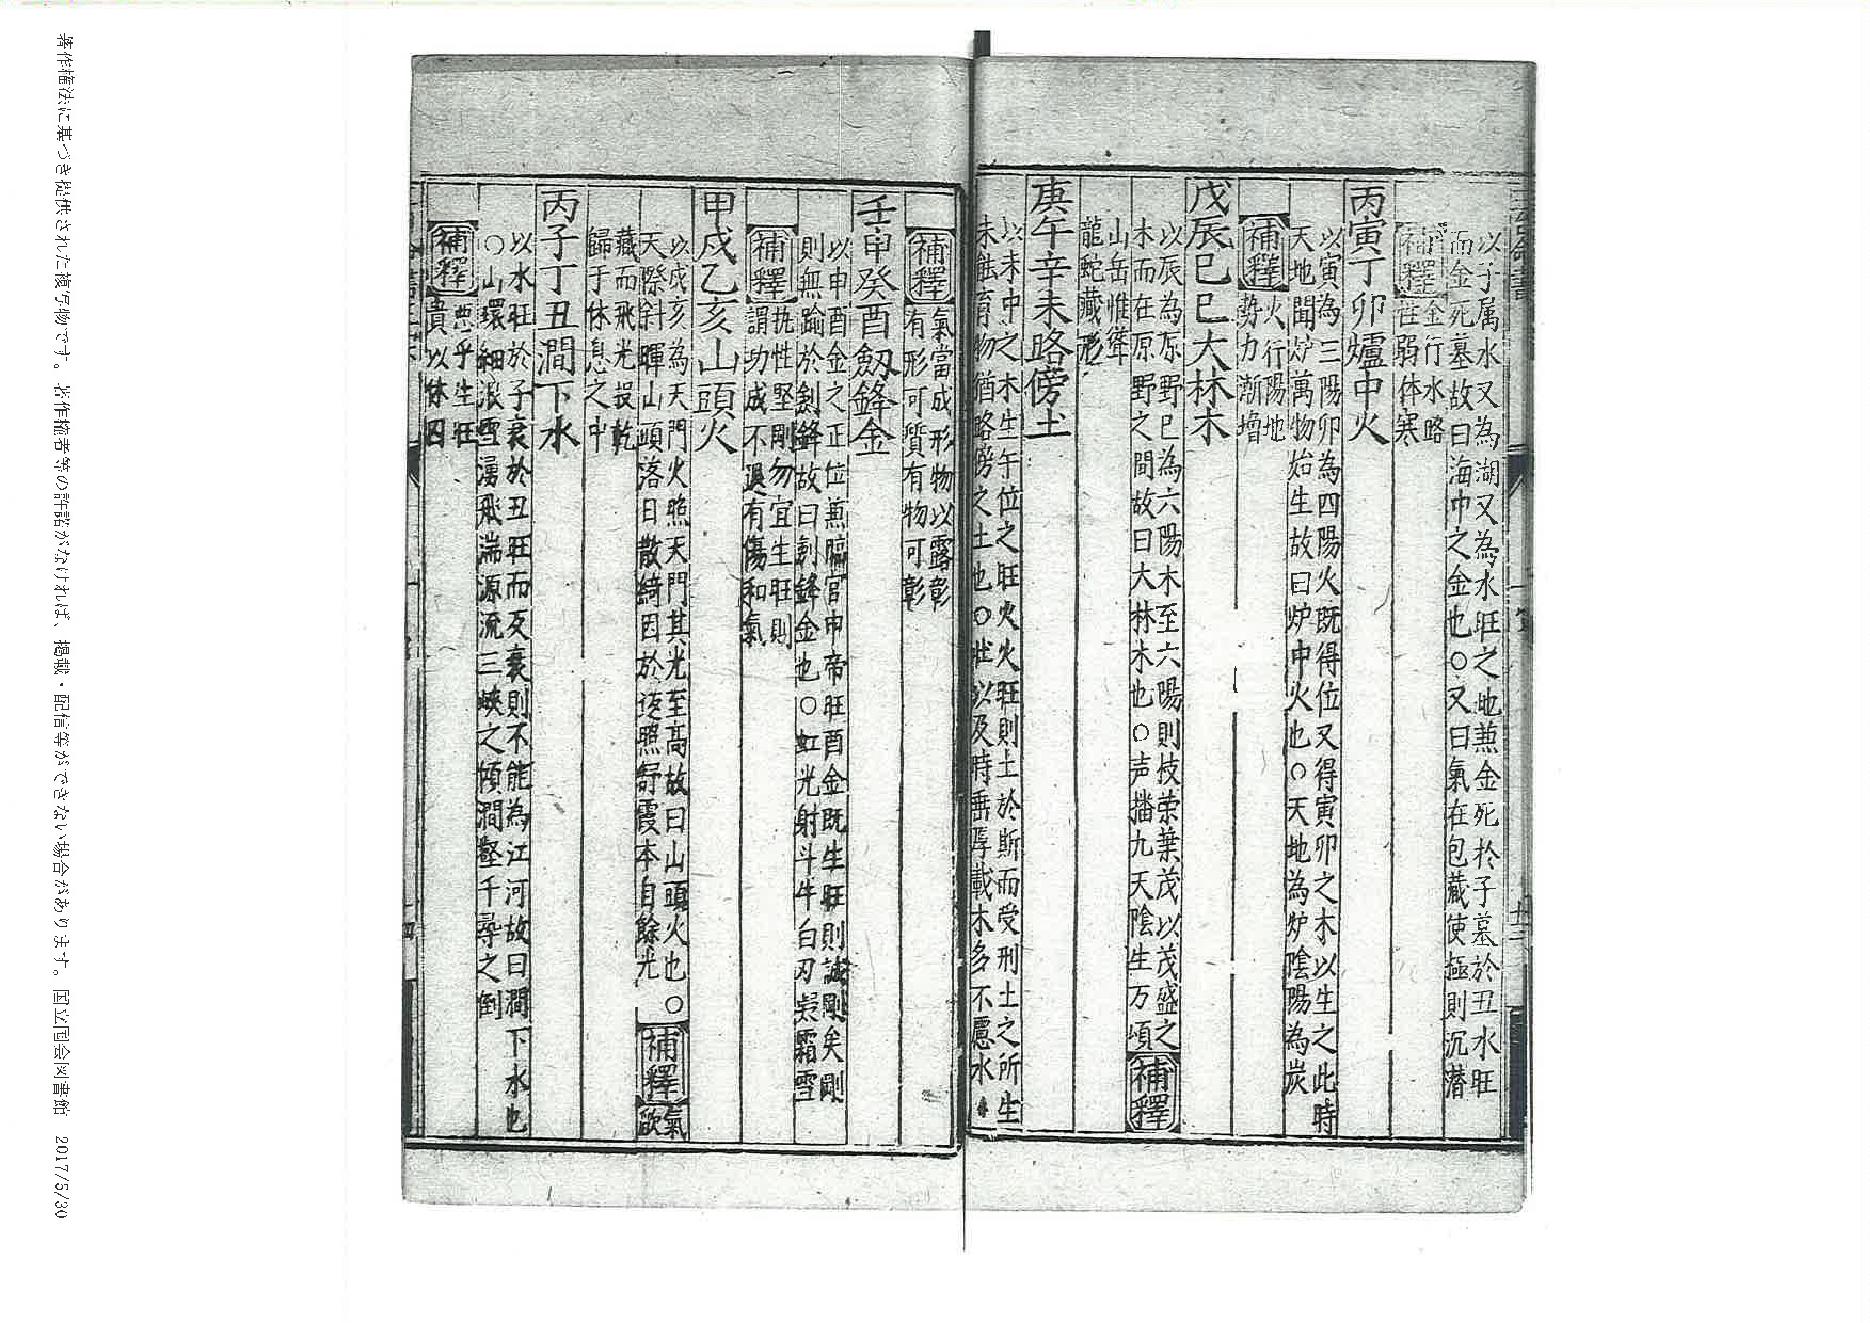 以子属水又為湖又為水旺之地兼金死於子墓於丑水旺
而金死墓故曰海中之金也○又曰氣在包藏使極則沉潜
補釋
金行水路
性弱体寒
丙寅丁卯爐中火
以寅為三陽卯為四陽火既得位又得寅卯之木以生之此時
天地開炉萬物始生故曰炉中火也○天地為炉陰陽為炭
補釋
火行陽地
勢力漸增
戊辰己巳大林木
以辰為原野巳為六陽木至六陽則枝荣葉茂以茂盛之
木而在原野之間故曰大林木也○声播九天陰生万頃
補釋
山岳惟聳
龍蛇藏形
庚午辛未路傍土
以未中之木生午位之旺火火旺則土於斯而受刑土之所生
未能育物猶路傍之土也○壯以及時乗厚載木多不慮水
補釋
氣當成形物以露彰
有形可質有物可彰
壬申癸酉劔鋒金
以申酉金之正位兼臨官申帝旺酉金既生旺則誠剛矣剛
則無踰於劍鋒故曰劍鋒金也○虹光射斗牛白刃凝霜雪
補釋
抗性堅剛勿宜生旺則
謂功成不退有傷和氣
甲戌乙亥山頭火
以戌亥為天門火照天門其光至高故曰山頭火也○
天際斜暉山頭落日散綺因於返照舒霞本自餘光
補釋
氣
歛
藏而飛光投乾
歸于休息之中
丙子丁丑澗下水
以水旺於子衰於丑旺而反衰則不能為江河故曰澗下水也
○山環細浪雪湧飛湍源流三峽之傾澗壑千尋之倒
補釋
惡乎生旺
貴以休囚
著作権法に基づき提供された複写物です。著作権者等の許諾がなければ、掲載・配信等ができない場合があります。国立国会図書館 2017/5/30